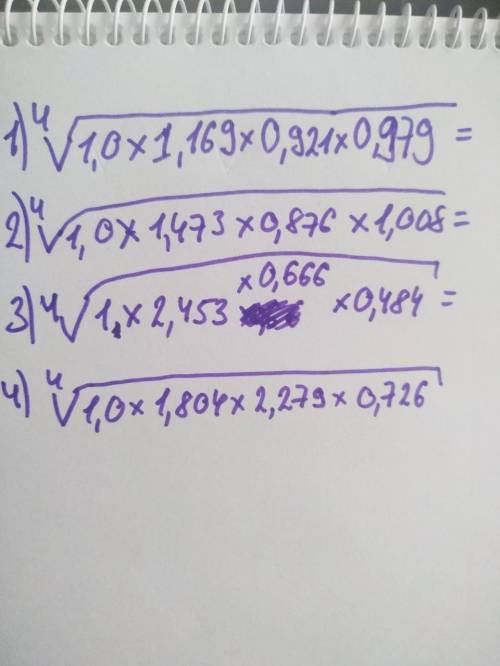 1) ⁴√1,0×1,169×0,921×0,979 =
2) ⁴√1,0×1,473×0,876×1,008=
3) ⁴√1,×2,453 ×0,666 ×0,484 =
4) ⁴√1,0×1,804×2,279×0,726